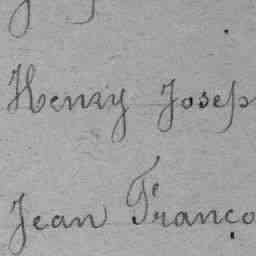 Henry Josep
Jean Franço